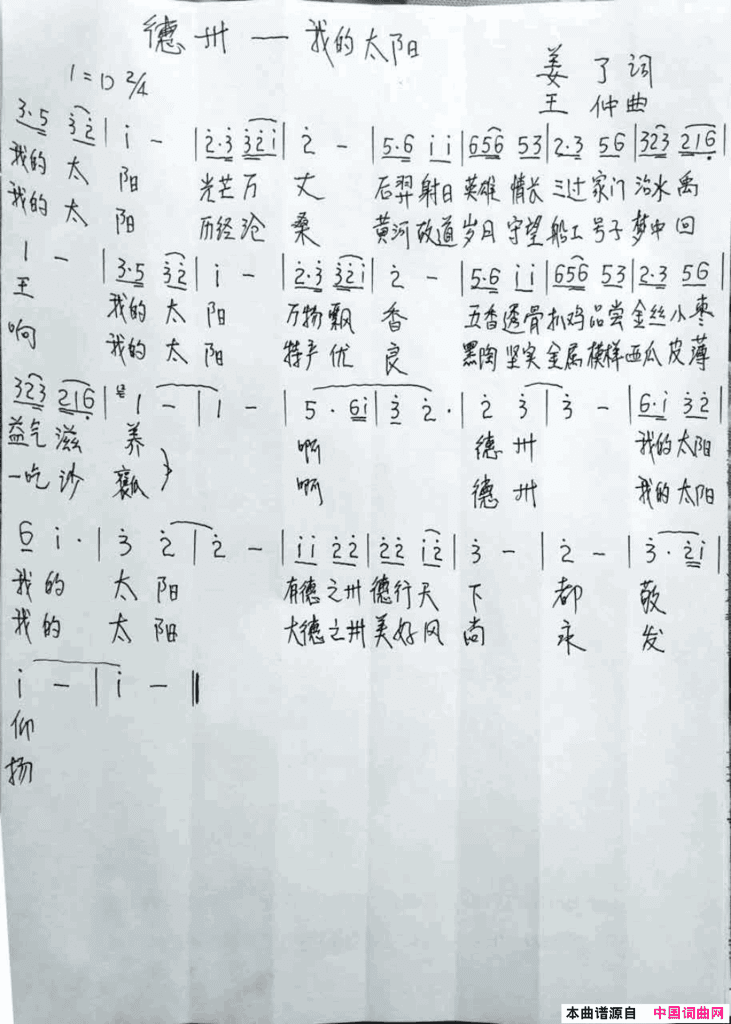 德州 — 我的太阳
1=D 2/4
姜了词
王仲曲
3·5 3 2 | i - | 2·3 3 2 i | 2 - | 5·6 i i | 6 5 6 5 3 | 2·3 5 6 | 3 2 3 2 1 6 |
我的 太 阳 光芒万 丈 后羿射日 英雄 情长 三过家门 治水 禹
我的 太 阳 历经沧 桑 黄河改道 岁月 守望 船工号子 梦中 回
1 - | 3·5 3 2 | i - | 2·3 3 2 i | 2 - | 5·6 i i | 6 5 6 5 3 | 2·3 5 6 |
王 我的 太 阳 万物飘 香 五香透骨 扒鸡 品尝 金丝小枣
响 我的 太 阳 特产优 良 黑陶坚实 金属 模样 西瓜皮薄
3 2 3 2 1 6 | 1 - | 1 - | 5 · 6 i | 3 2 · | 2 3 | 3 - | 6·i 3 2 |
益气滋 养 啊 德 州 我的太阳
一吃沙 瓤 啊 德 州 我的太阳
6 i · | 3 2 | 2 - | i i 2 2 | 2 2 i 2 | 3 - | 2 - | 3 · 2 i |
我 的 太 阳 有德之州 德行天 下 都 敬
我 的 太 阳 大德之州 美好风 尚 永 发
i - | i - ‖
仰
扬
本曲谱源自 中国词曲网